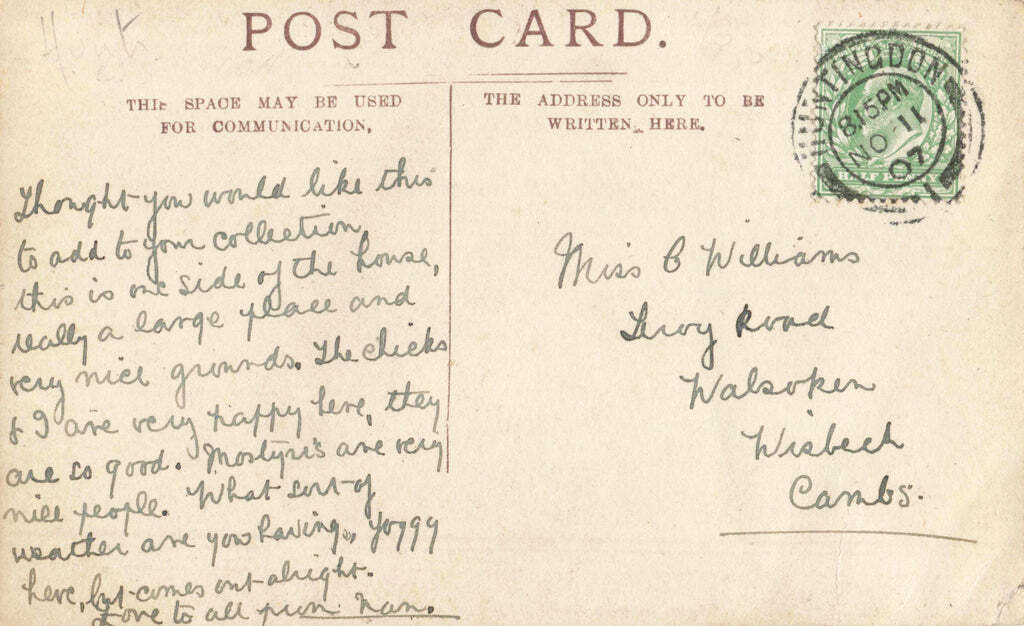 Hunts
POST CARD.
THIS SPACE MAY BE USED
FOR COMMUNICATION,
THE ADDRESS ONLY TO BE
WRITTEN HERE.
HUNTINGDON
8.15PM
NO 11
07
HALF PENNY
Thought you would like this
to add to your collection,
this is one side of the house,
really a large place and
very nice grounds. The chicks
& I are very happy here, they
are so good. Mostyn's are very
nice people. What sort of
weather are you having, foggy
here, but comes out alright.
Love to all from Nan.
Miss B Williams
Leroy Road
Walsoken
Wisbech
Cambs.